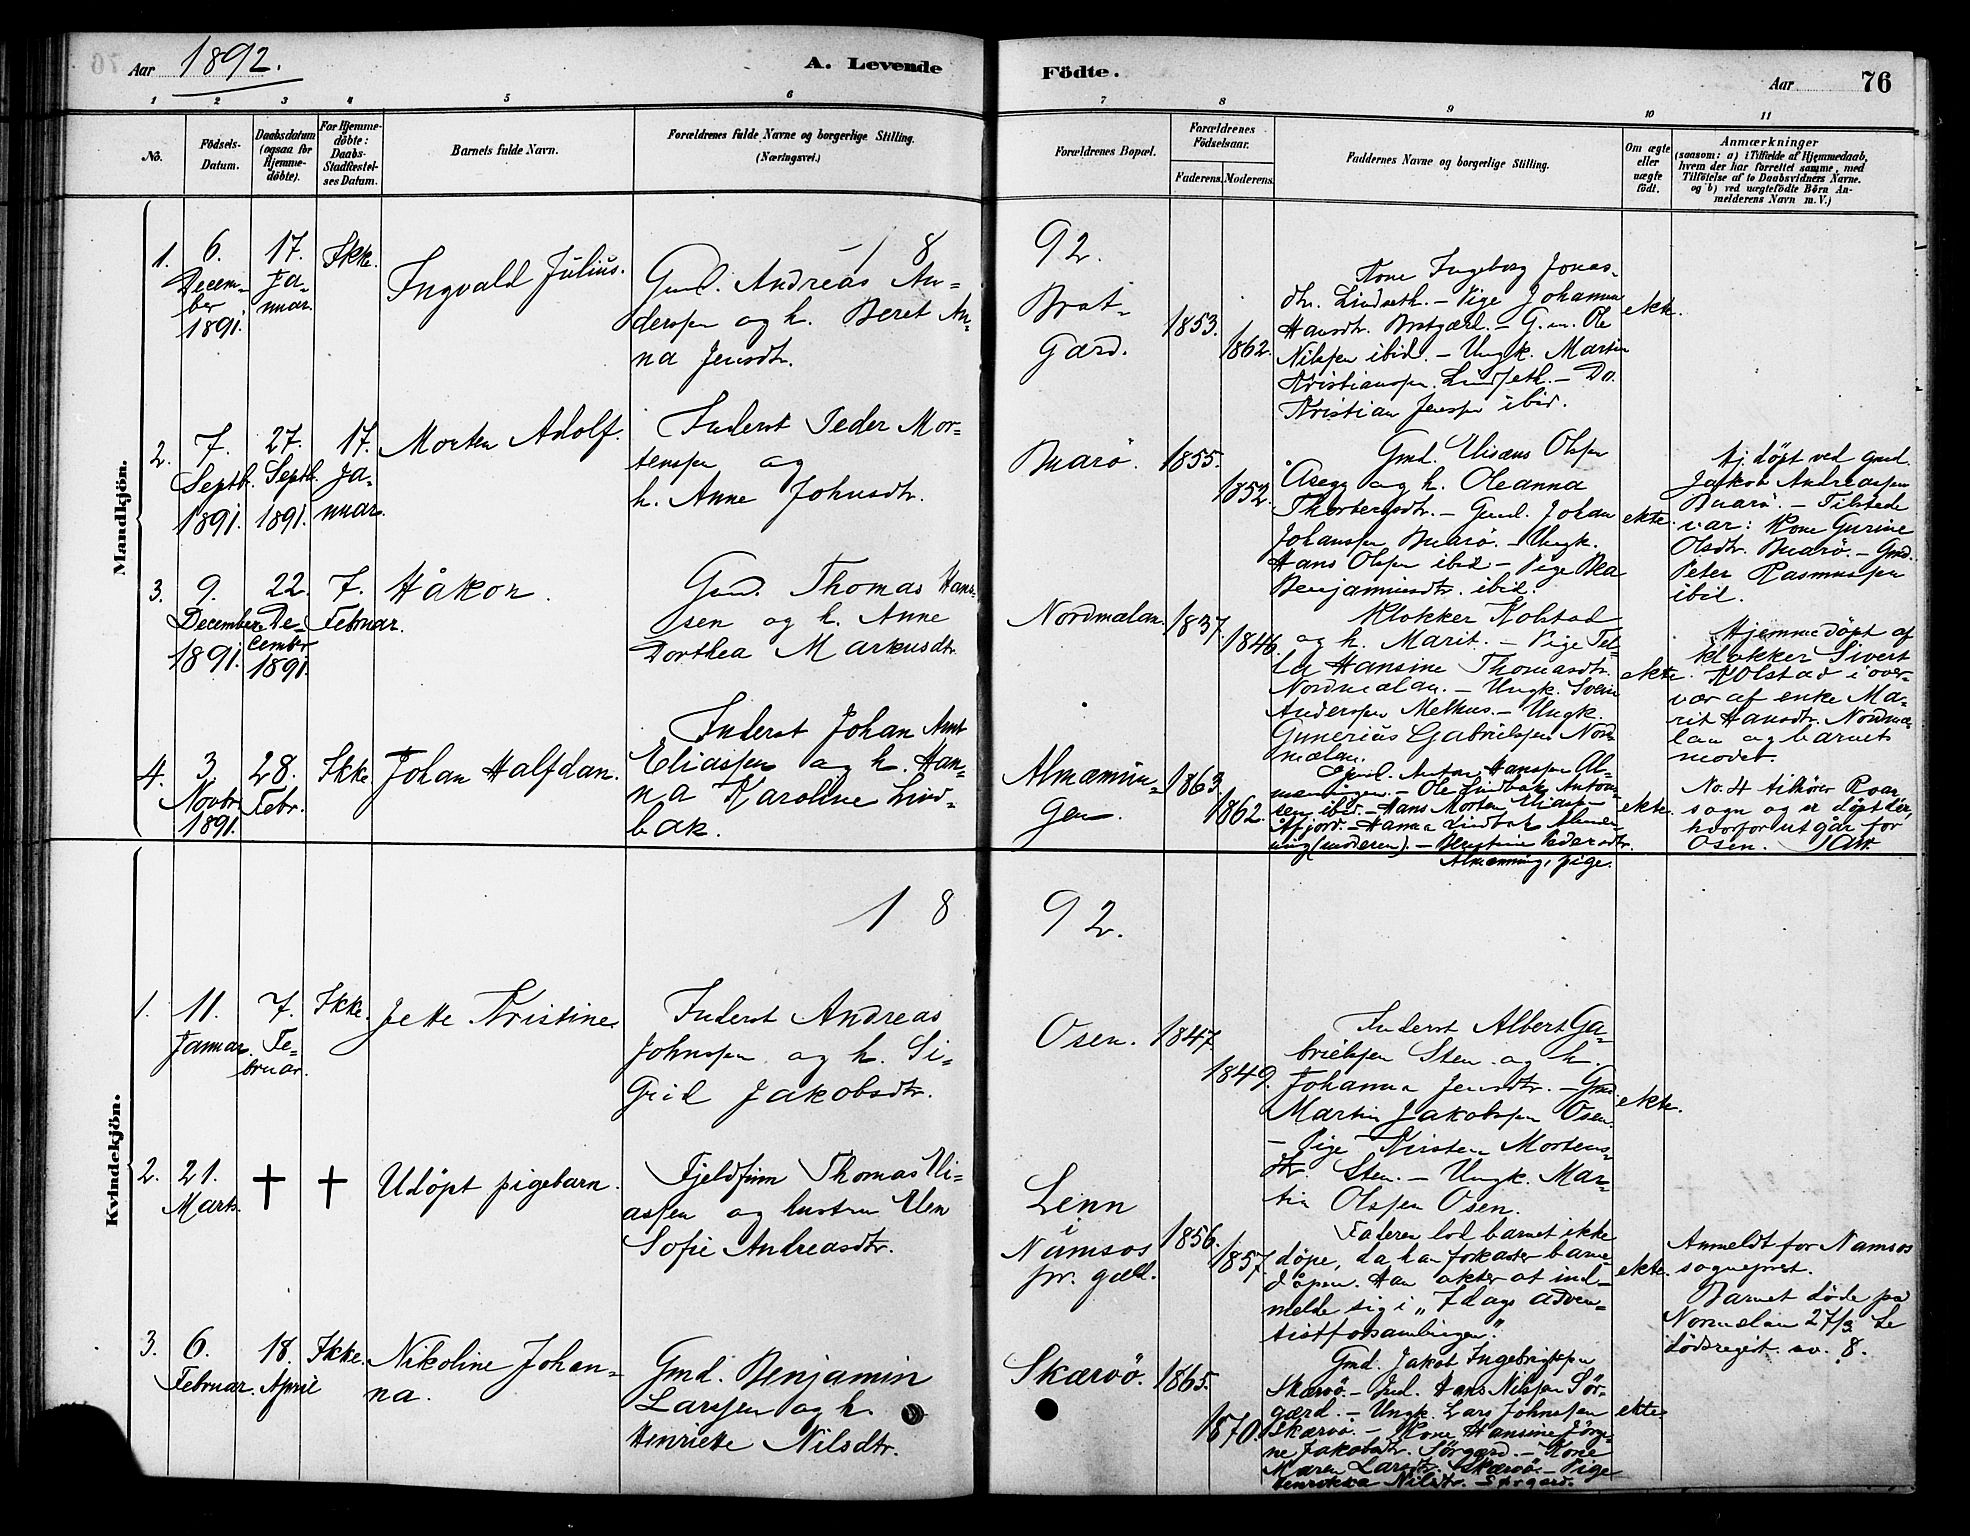 Aar 1892.
A. Levende
Födte.
Aar
76
1 2 3 4 5 6 7 8 9 10 11
No.
Födsels-
Datum.
Daabsdatum
(ogsaa for
Hjemme-
döbte).
For Hjemme-
döbte:
Daabs-
Stadfæstel-
ses Datum.
Barnets fulde Navn.
Forældrenes fulde Navne og borgerlige Stilling.
(Næringsvei.)
Forældrenes Bopæl.
Forældrenes
Födselsaar.
Faderens. Moderens.
Faddernes Navne og borgerlige Stilling.
Om ægte
eller
uægte
födt.
Anmærkninger
(saasom: a) i Tilfælde af Hjemmedaab,
hvem der har forrettet samme, med
Tilföielse af to Daabsvidners Navne.
og b) ved uægtefödte Börn An-
melderens Navn m. V.)
Mandkjön.
18
92.
1.
6.
Decem-
ber
1891.
17.
Ja-
nuar.
Ikke.
Ingvald Julius.
Gmd. Andreas An-
derssen og h. Beret An-
na Jensdtr.
Brat-
Gard.
1853.
1862.
Kone Ingeborg Jonas-
dtr. Lindseth. – Pige Johanna
Hansdtr. Bratgærd. – G.m. Ole
Nilssen ibid. – Ungk. Martin
Kristianssen Lindseth. – Do.
Kristian Jenssen ibid.
ekte.
2.
7.
Septb.
1891.
27.
Septb.
1891.
17.
Ja-
nuar.
Morten Adolf.
Inderst Peder Mor-
tenssen og
h. Anne Johnsdtr.
Buarö.
1855.
1852.
Gmd. Elisæus Olssen
Asegg og h. Oleanna
Thorbersdtr. – Gmd. Johan
Johanssen Buarö. – Ungk.
Hans Olssen ibid – Pige Bea
Benjaminsdtr. ibid.
ekte.
Hj. döpt ved gmd.
Jakob Andreassen
Buarö. – Tilstede
var: Kone Gurine
Olsdtr. Buarö. – Gmd.
Peter Rasmussen
ibid.
3.
9.
December
1891.
22.
De-
cembr
1891.
7.
Februar.
Håkon.
Gmd. Thomas Hans-
sen og h. Anne
Dorthea Markusdtr.
Nordmælan.
1837.
1846.
Klokker Kolstad
og h. Marit. – Pige Tel-
la Hansine Thomasdtr.
Nordmælan. – Ungk. Svein
Anderssen Melhus. – Ungk.
Gunerius Gabrielssen Nord
mælan.
ekte.
Hjemmedöpt af
klokker Sivert
Kolstad i over-
vær af enke Ma-
rit Hansdtr. Nordmæ-
lan og barnets
moder.
4.
3.
Novbr.
1891.
28.
Febr.
Ikke
Johan Halfdan.
Inderst Johan Arnt
Eliassen og h. Han-
na Karoline Lind-
bak.
Almænnin-
gen.
1863.
1862.
Gmd. Anton Hanssen Al-
mænningen. – Ole Lindbak Anton-
sen ibid. – Hans Morten Eliassen
Åfjord. – Hanna Lindbak Almæn-
ning (moderen). – Kristine Pedersdtr.
Almænning, pige.
ekte.
No. 4 tilhörer Roan
sogn og er döpt der,
hvorfor utgår for
Osen.
Kvindekjön.
18
92.
1.
11.
Januar.
7.
Fe-
bruar.
Ikke.
Jette Kristine.
Inderst Andreas
Johnssen og h. Si-
grid Jakobsdtr.
Osen.
1847.
1849.
Inderst Albert Ga-
brielssen Sten og h.
Johanna Jensdtr. – Gmd.
Martin Jakobssen Osen.
– Pige Kirsten Mortens-
dtr. Sten. – Ungk. Mar-
tin Olssen Osen.
ekte.
2.
21.
Marts.
†
†
Udöpt pigebarn.
Fjeldfinn Thomas Eli-
assen og hustru Elen
Sofie Andreasdtr.
Lenn
i
Namsos
pr. gæld.
1856.
1857.
Faderen lod barnet ikke
döpe, da han forkaster barne
dåpen. Han akter at ind-
melde sig i „7dags adven-
tistforsamlingen."
ekte.
Anmeldt for Namsos
sogneprest.
Barnet döde på
Normelan 27/3. Se
dödsregist. no. 8.
3.
6.
Februar.
18.
April
Ikke.
Nikoline Johan-
na.
Gmd. Benjamin
Larssen og h.
Henriette Nilsdtr.
Skærvö.
1865.
1870.
Gmd. Jakob Ingebrigtssen
Skærvö. – Ind. Hans Nilssen Sör-
gærd. – Ungk. Lars Johnssen
Skærvö. – Kone Hansine Jörgi-
ne Jakobsdtr. Sörgærd. – Kone
Maren Larsdtr. Skærvö. – Pige
Henrikka Nilsdtr. Sörgærd.
ekte